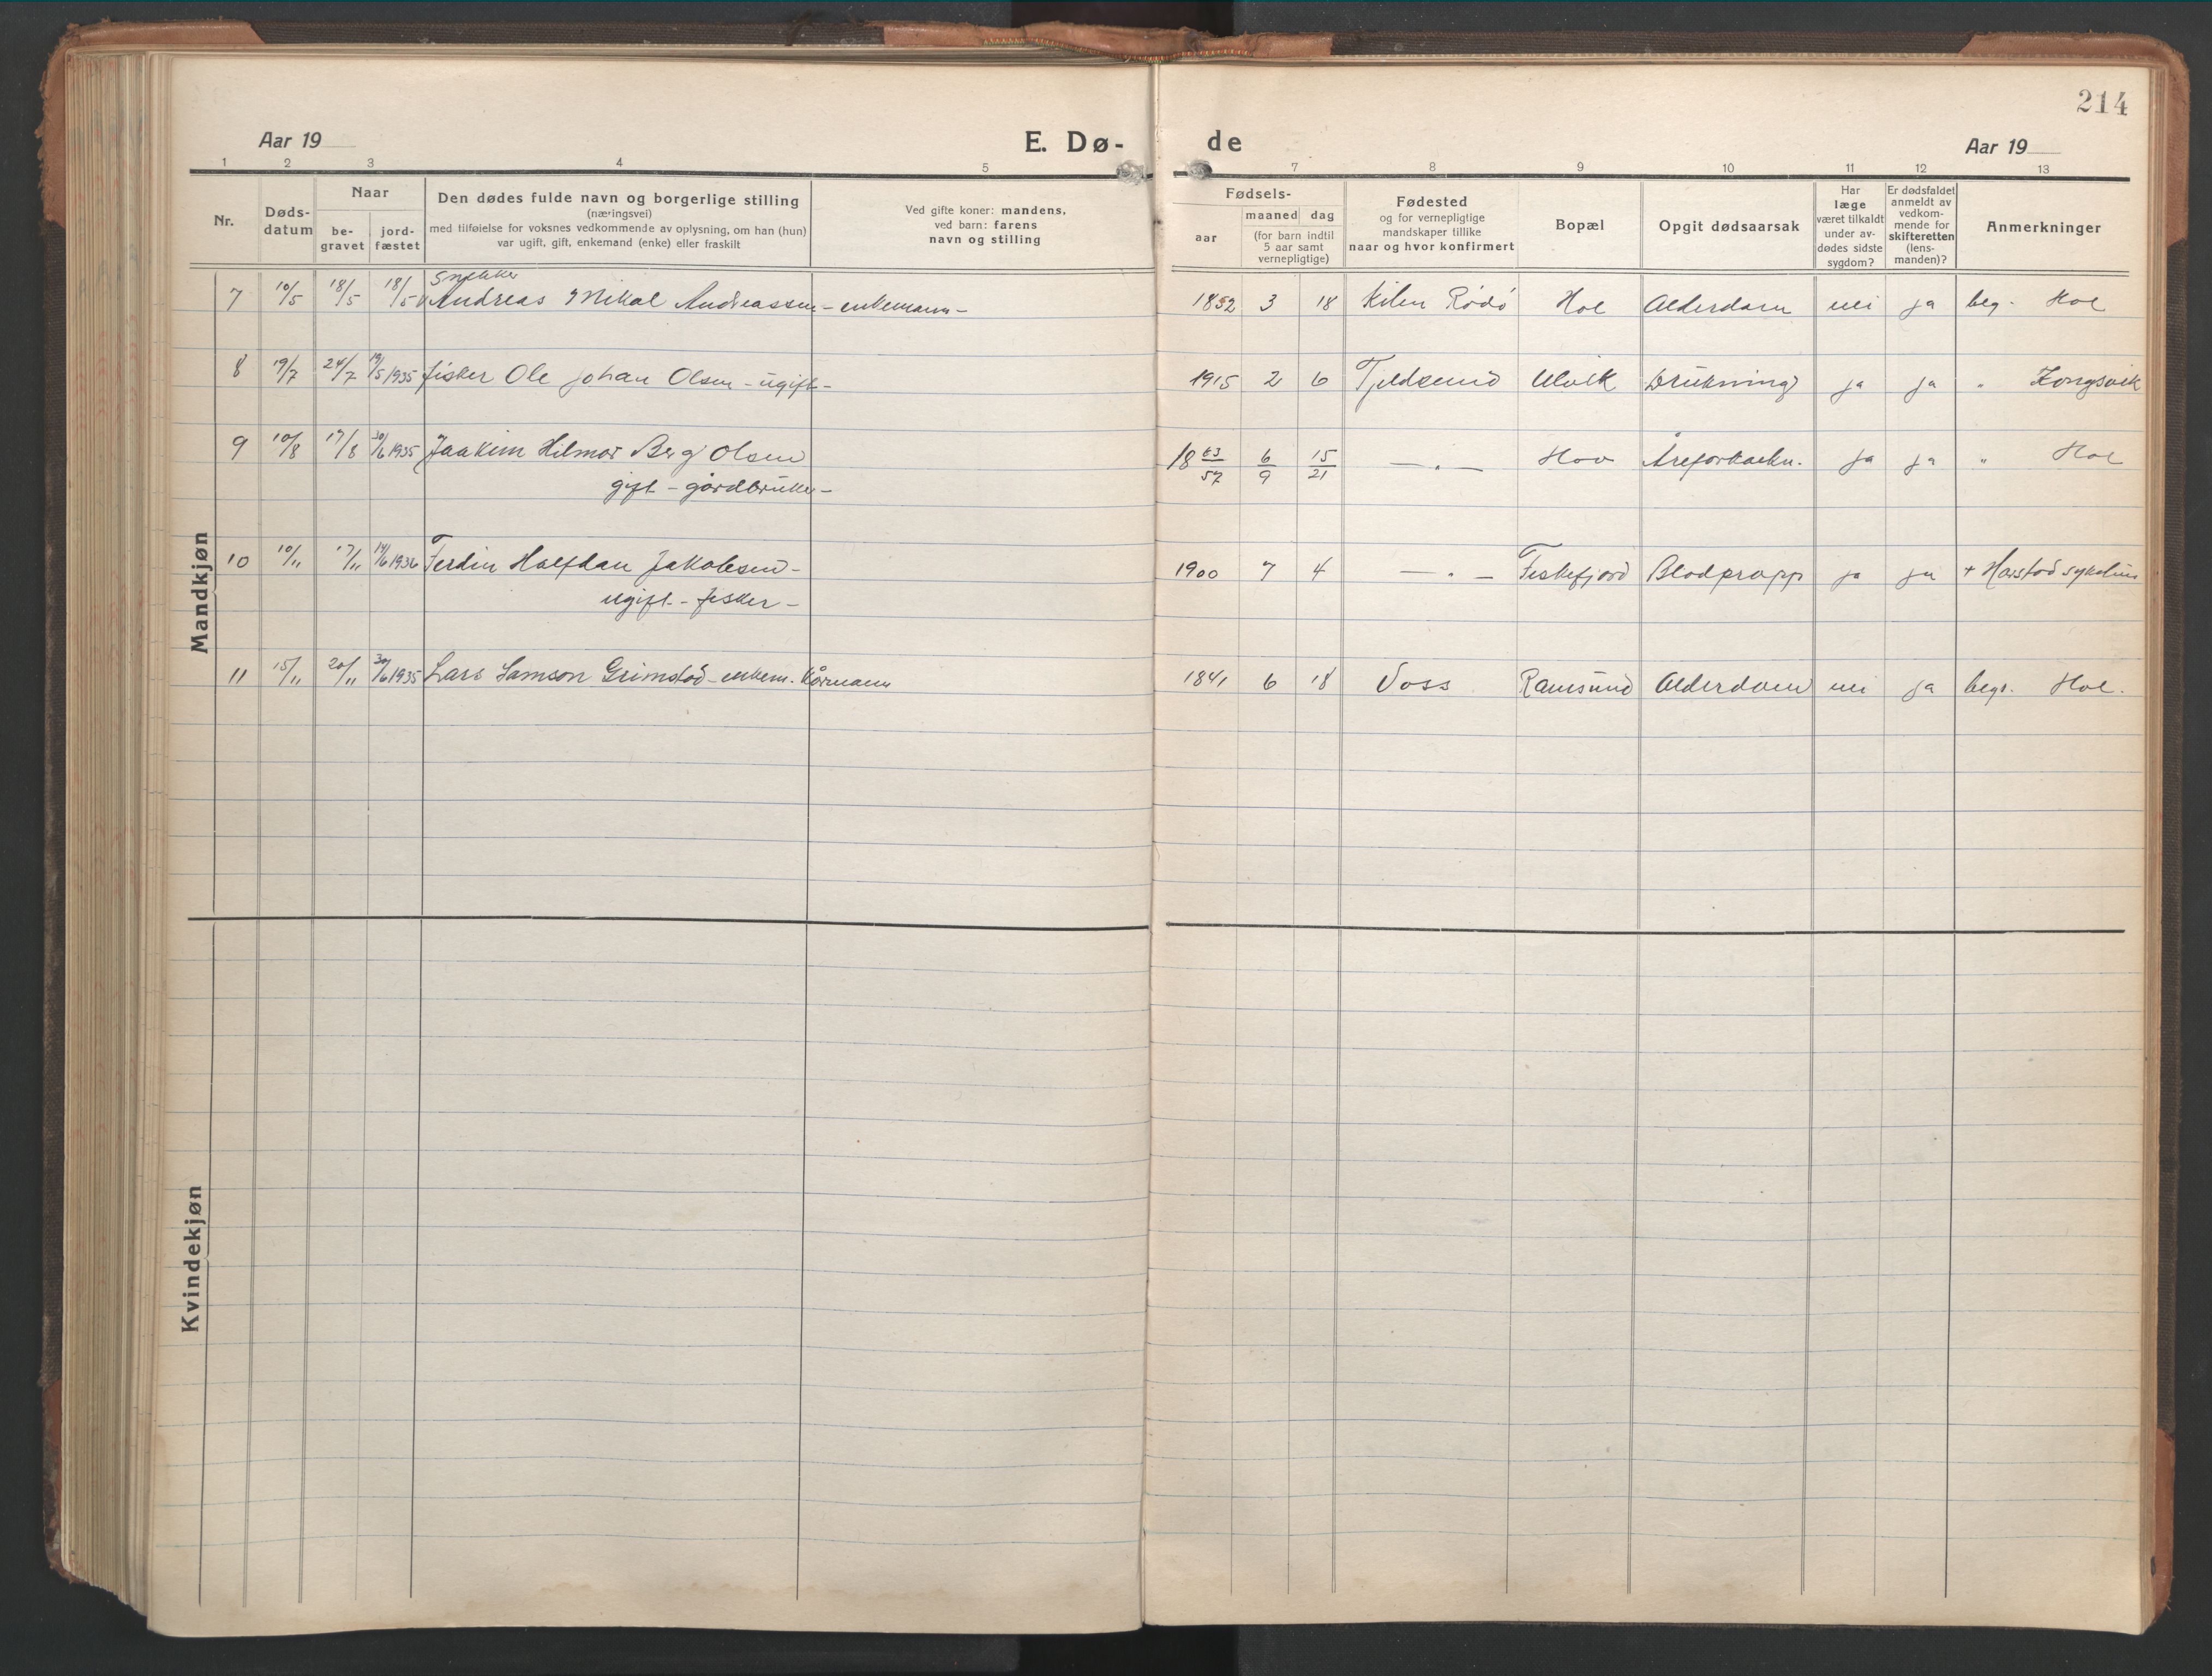 214
Aar 19
E. Dø-
de
Aar 19
1 2 3 4 5 7 8 9 10 11 12 13
Nr.
Døds-
datum
Naar
be-
gravet
jord-
fæstet
Den dødes fulde navn og borgerlige stilling
(næringsvei)
med tilføielse for voksnes vedkommende av oplysning, om han (hun)
var ugift, gift, enkemand (enke) eller fraskilt
Ved gifte koner: mandens,
ved barn: farens
navn og stilling
Fødsels-
aar
maaned dag
(for barn indtil
5 aar samt
vernepligtige)
Fødested
og for vernepligtige
mandskaper tillike
naar og hvor konfirmert
Bopæl
Opgit dødsaarsak
Har
læge
været tilkaldt
under av-
dødes sidste
sygdom?
Er dødsfaldet
anmeldt av
vedkom-
mende for
skifteretten
(lens-
manden)?
Anmerkninger
Mandkjøn
Snekker
7 10/5 18/5 18/5 Andreas Mikal Andreassen - enkemann - 1852 3 18 Kilen Rödö Hol Alderdom nei ja beg. Hol
8 19/7 24/7 19/5 1935 fisker Ole Johan Olsen - ugift - 1915 2 6 Tjeldsund Ulvik Drukning ja ja " Kongsvik
9 10/8 17/8 30/6 1935 Joakim Hilmar Berg Olsen 18 63/57 6/9 15/21 — " — Hov Åreforkalkn. ja ja " Hol
gift - gårdbruker -
10 10/11 17/11 14/6 1936 Ferdin Halfdan Jakobsen - 1900 7 4 — " — Fiskefjord Blodpropp ja ja + Harstad sykehus
ugift - fisker -
11 15/11 20/11 30/6 1935 Lars Samson Grimstad - enkem. kårmann 1841 6 18 Voss Ramsund Alderdom nei ja begr. Hol.
Kvindekjøn